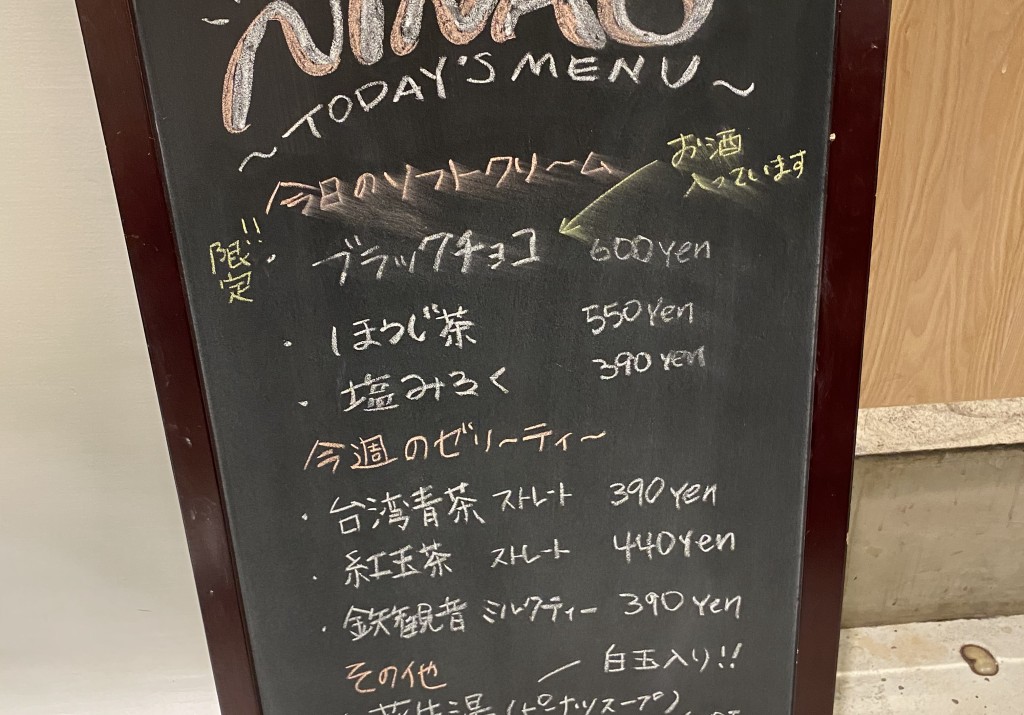 NINAO
~TODAY'S MENU~
今日のソフトクリーム
お酒
入っています
限定!!
・ブラックチョコ 600yen
・ほうじ茶 550yen
・塩みるく 390yen
今週のゼリーティー
・台湾青茶 ストレート 390yen
・紅玉茶 ストレート 440yen
・鉄観音 ミルクティー 390yen
その他
白玉入り!!
花生湯(ピーナッツスープ)